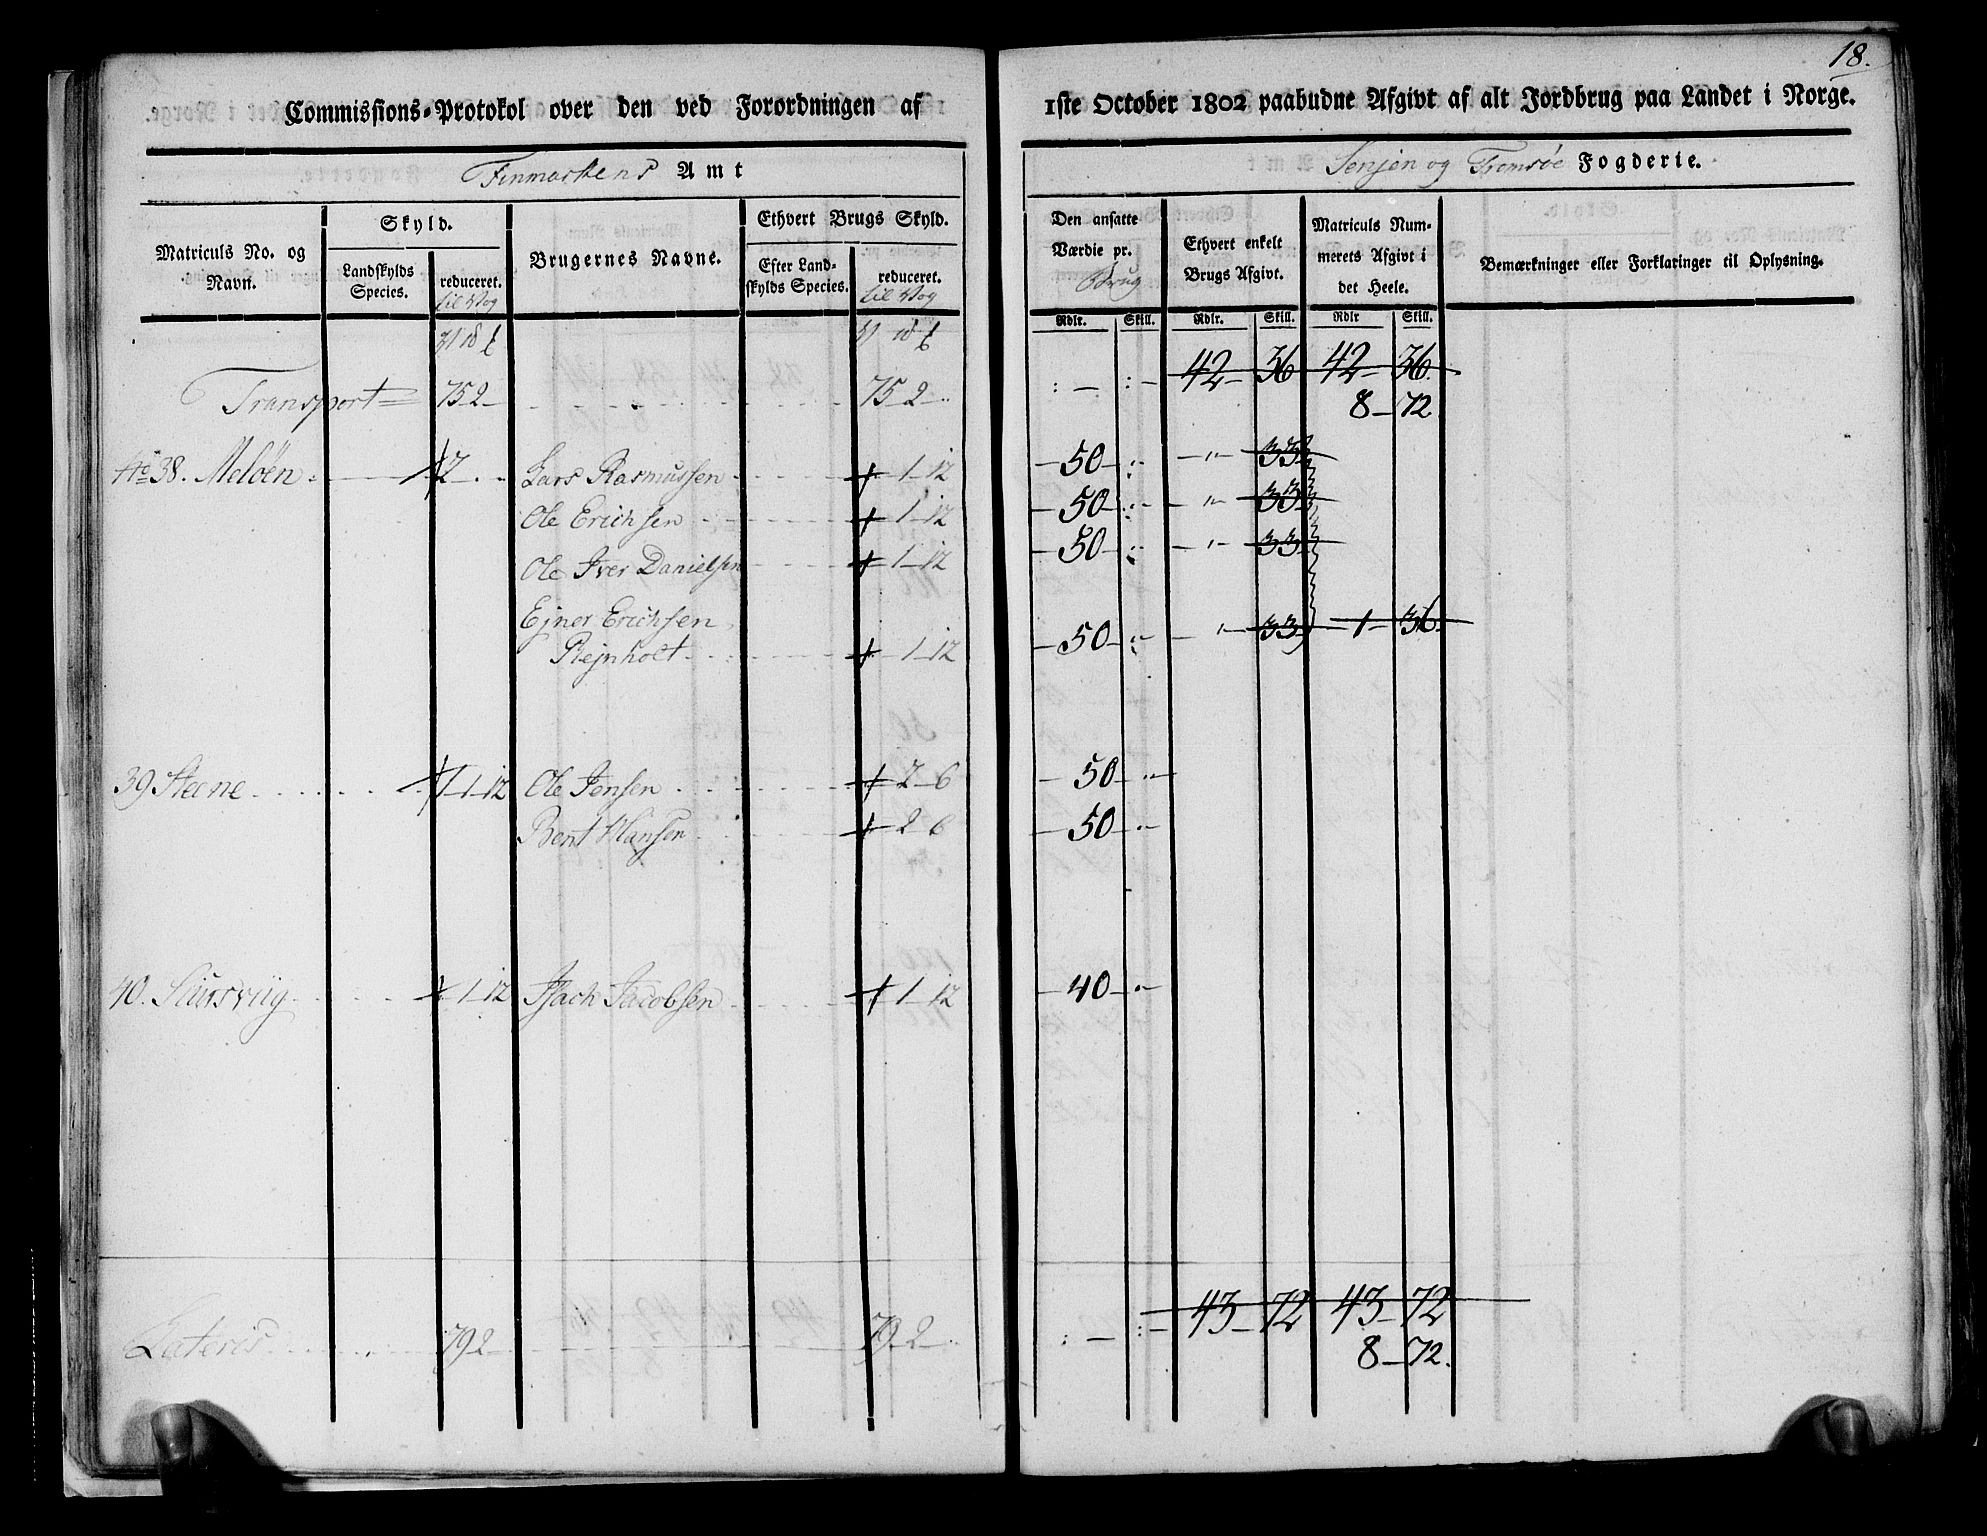 18.
Commissions-Protokol over den ved Forordningen af 1ste October 1802 paabudne Afgivt af alt Jordbrug paa Landet i Norge.
Finmarkens Amt
Senjen og Tromsøe Fogderie.
Matriculs No. og Navn.
Skyld.
Landskylds Species.
reduceret. til Vog
Brugernes Navne.
Ethvert Brugs Skyld.
Efter Landskylds Species.
reduceret. til Vog
Den ansatte Værdie pr. Brug
Ethvert enkelt Brugs Afgivt.
Matriculs Nummerets Afgivt i det Heele.
Bemærkninger eller Forklaringer til Oplysning.
Rdlr. Skill. Rdlr. Skill. Rdlr Skill.
Transport 75 2 75 2 42 36 42 36
8 72
No 38. Meløen 2 Lars Rasmussen 1 12 50 33
Ole Erichsen 1 12 50 33
Ole Iver Danielsen 1 12 50 33
Ejner Erichsen
Rejnholt 1 12 50 33 1 36
39 Steene 1 1 12 Ole Jensen 2 6 50
Bent Hansen 2 6 50
40. 1 12 Isach Jacobsen 1 12 40
Lateris 79 2 79 2 43 72 43 72
8 72.